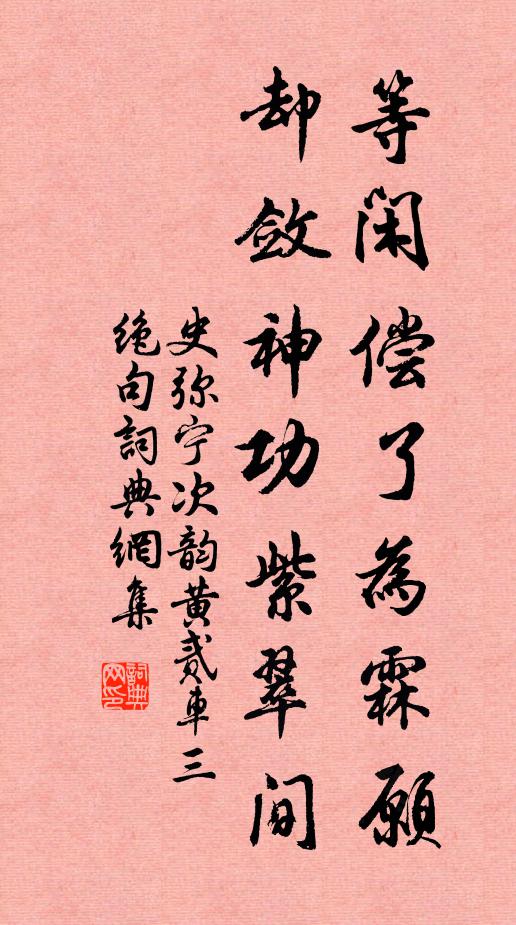 等闲偿了為霖願
却斂神功紫翠间
史弥宁次韵黄贰車三
绝句詞典網集
詞典网印